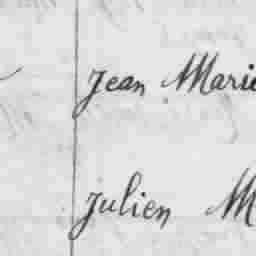 Jean Marie
Julien M